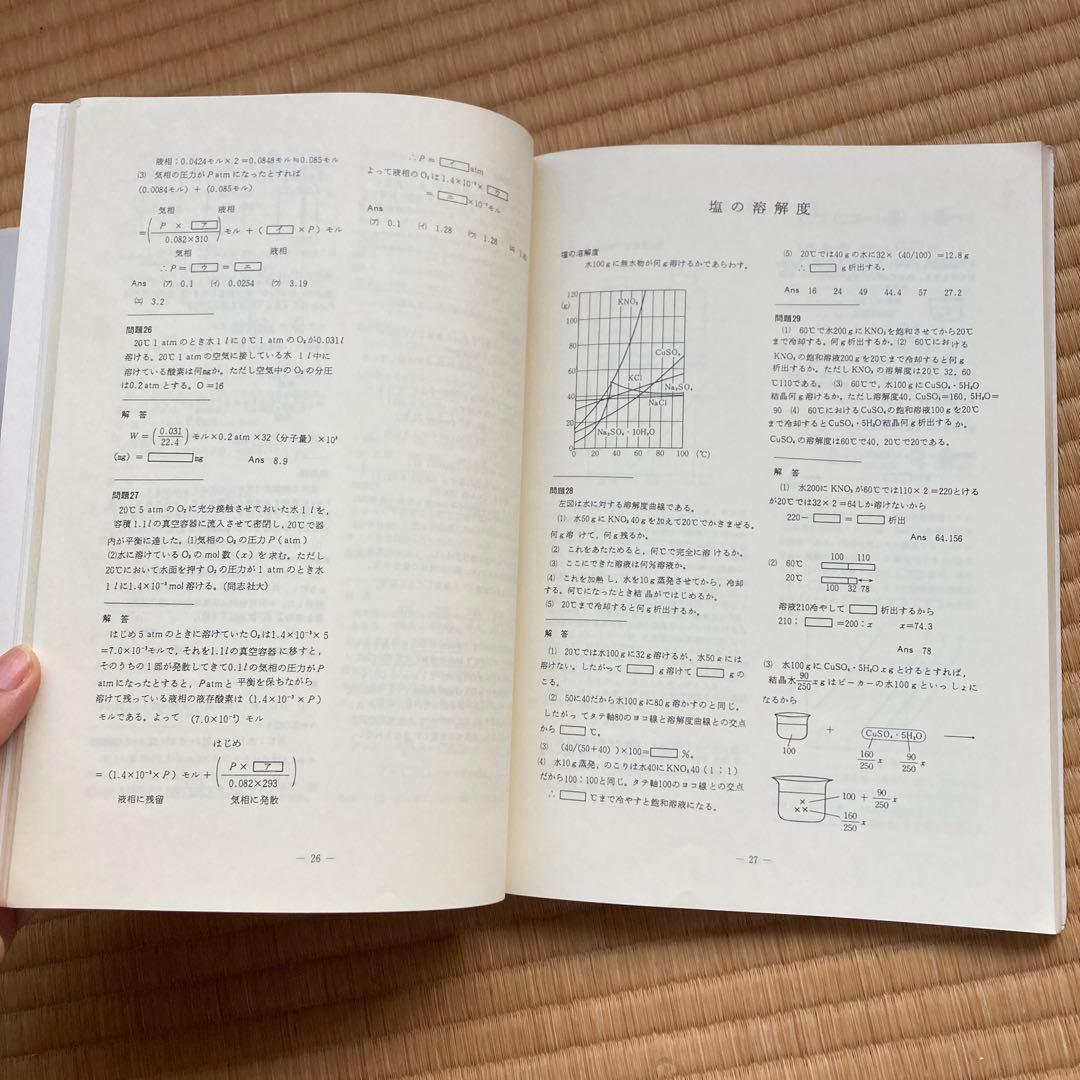 液相：0.0424モル×2＝0.0848モル≒0.085モル
(3) 気相の圧力がP atmになったとすれば
(0.0084モル) ＋ (0.085モル)
気相 液相
＝(P × ア / 0.082×310)モル＋(イ×P)モル
気相 液相
∴P＝ウ＝エ
Ans (ア) 0.1 (イ) 0.0254 (ウ) 3.19
(エ) 3.2
問題26
20℃ 1 atmのとき水1lに0℃1 atmのO₂が0.031l
溶ける。20℃1 atmの空気に接している水 1l中に
溶けている酸素は何mgか。ただし空気中のO₂の分圧
は0.2 atmとする。O＝16
解 答
W＝(0.031/22.4)モル×0.2 atm×32（分子量）×10³
(mg)＝ mg Ans 8.9
問題27
20℃ 5 atmのO₂に充分接触させておいた水1lを,
容積1.1lの真空容器に流入させて密閉し,20℃で器
内が平衡に達した。(1)気相のO₂の圧力P (atm)
(2)水に溶けているO₂のmol数（x）を求む。ただし
20℃において水面を押すO₂の圧力が1 atmのとき水
1lに1.4×10⁻³mol溶ける。(同志社大)
解 答
はじめ5 atmのときに溶けていたO₂は1.4×10⁻³×5
＝7.0×10⁻³モルで，それを1.1lの真空容器に移すと，
そのうちの1部が発散してきて0.1lの気相の圧力がP
atmになったとすると，Patmと平衡を保ちながら
溶けて残っている液相の液存酸素は（1.4×10⁻³×P）
モルである。よって (7.0×10⁻³) モル
はじめ
＝(1.4×10⁻³×P) モル＋(P × ア / 0.082×293)
液相に残留 気相に発散
∴P＝イ atm
よって液相のO₂は1.4×10⁻³×ウ
＝エ×10⁻³モル
Ans
(ア) 0.1 (イ) 1.28 (ウ) 1.28 (エ)
― 26 ―
塩の溶解度
塩の溶解度
水100gに無水物が何g溶けるかであらわす。
120
(g)
100
80
60
40
20
0
KNO₃
CuSO₄
KCl
Na₂SO₄
NaCl
Na₂SO₄・10H₂O
0 20 40 60 80 100 (℃)
問題28
左図は水に対する溶解度曲線である。
(1) 水50gにKNO₃ 40gを加えて20℃でかきまぜる。
何g溶けて，何g残るか。
(2) これをあたためると，何℃で完全に溶けるか。
(3) ここにできた溶液は何％溶液か。
(4) これを加熱し，水を10g蒸発させてから，冷却
する。何℃になったとき結晶がではじめるか。
(5) 20℃まで冷却すると何g析出するか。
解 答
(1) 20℃では水100gに32g溶けるが，水50gには
溶けない。したがって g溶けて gの
こる。
(2) 50に40だから水100gに80g溶かすのと同じ。
したがってタテ軸80のヨコ線と溶解度曲線との交点
から ℃。
(3) (40/(50＋40))×100＝ %。
(4) 水10g蒸発，のこりは水40にKNO₃40（1：1）
だから100：100と同じ。タテ軸100のヨコ線との交点
∴ ℃まで冷やすと飽和溶液になる。
(5) 20℃では40gの水に32×（40/100）＝12.8g
∴ g析出する。
Ans 16 24 49 44.4 57 27.2
問題29
(1) 60℃で水200gにKNO₃を飽和させてから20℃
まで冷却する。何g析出するか。(2) 60℃における
KNO₃の飽和溶液200gを20℃まで冷却すると何g
析出するか。ただしKNO₃の溶解度は20℃ 32, 60
℃110である。 (3) 60℃で，水100gにCuSO₄・5H₂O
結晶何g溶けるか。ただし溶解度40, CuSO₄＝160, 5H₂O＝
90 (4) 60℃におけるCuSO₄の飽和溶液100gを20℃
まで冷却するとCuSO₄・5H₂O結晶何g析出するか。
CuSO₄の溶解度は60℃で40, 20℃で20である。
解 答
(1) 水200にKNO₃が60℃では110×2＝220とける
が20℃では32×2＝64しか溶けないから
220－ ＝ 析出
Ans 64.156
(2) 60℃ 100 110
20℃ 100 32 78
溶液210冷やして 析出するから
210： ＝200：x x＝74.3
Ans 78
(3) 水100gにCuSO₄・5H₂O xgとけるとすれば，
結晶水90/250 xgはビーカーの水100gといっしょに
なるから
100 ＋ CuSO₄・5H₂O
160/250 x 90/250 x
100 ＋ 90/250 x
160/250 x
― 27 ―